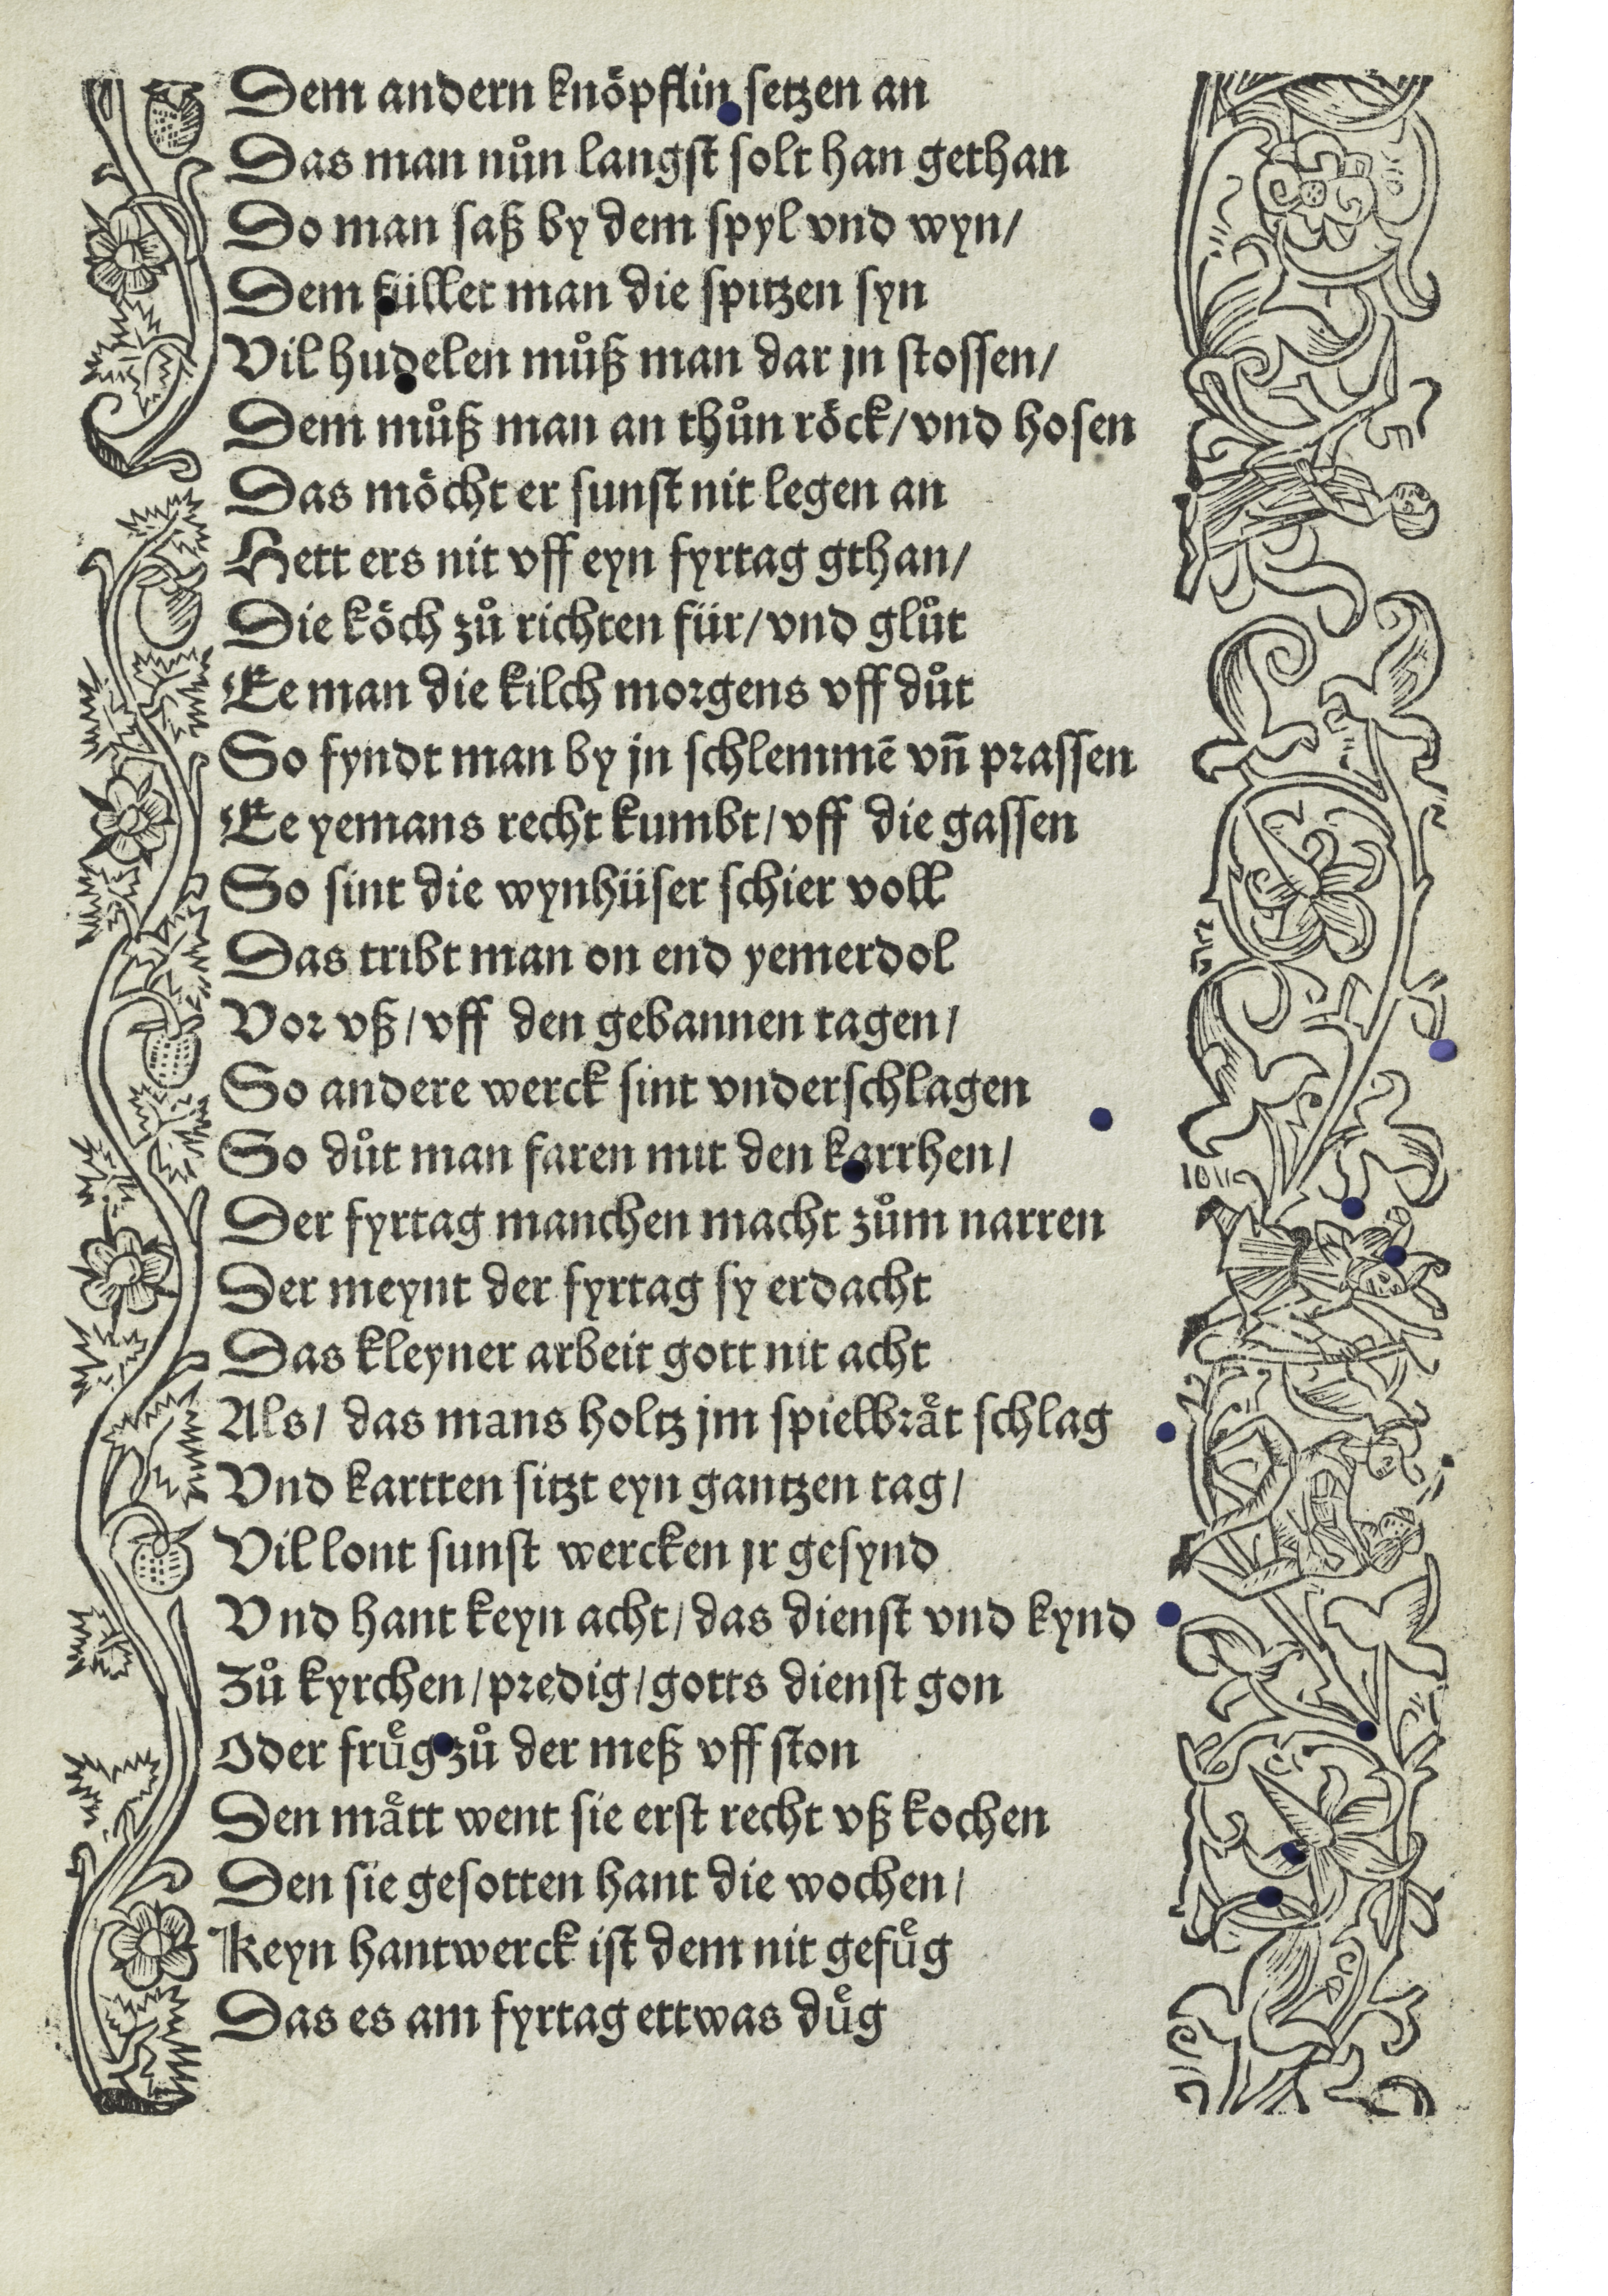 Dem andern knöpflin setzen an
Das man nůn langst solt han gethan
Do man saß by dem spyl vnd wyn/
Dem füllet man die spitzen syn
Vil hudelen můß man dar jn stossen/
Dem můß man an thůn röck/vnd hosen
Das möcht er sunst nit legen an
Hett ers nit vff eyn fyrtag gthan/
Die köch zů richten für/vnd glůt
Ee man die kilch morgens vff důt
So fyndt man by jn schlemmē vn̄ prassen
Ee yemans recht kumbt/vff die gassen
So sint die wynhüser schier voll
Das tribt man on end yemerdol
Vor vß/vff den gebannen tagen/
So andere werck sint vnderschlagen
So důt man faren mit den karrhen/
Der fyrtag manchen macht zům narren
Der meynt der fyrtag sy erdacht
Das kleyner arbeit gott nit acht
Als/ das mans holtz jm spielbraͤt schlag
Vnd kartten sitzt eyn gantzen tag/
Vil lont sunst wercken jr gesynd
Vnd hant keyn acht/das dienst vnd kynd
Zů kyrchen/predig/gotts dienst gon
Oder fruͤg zů der meß vff ston
Den maͤtt went sie erst recht vß kochen
Den sie gesotten hant die wochen/
Keyn hantwerck ist dem nit gefuͤg
Das es am fyrtag ettwas duͤg